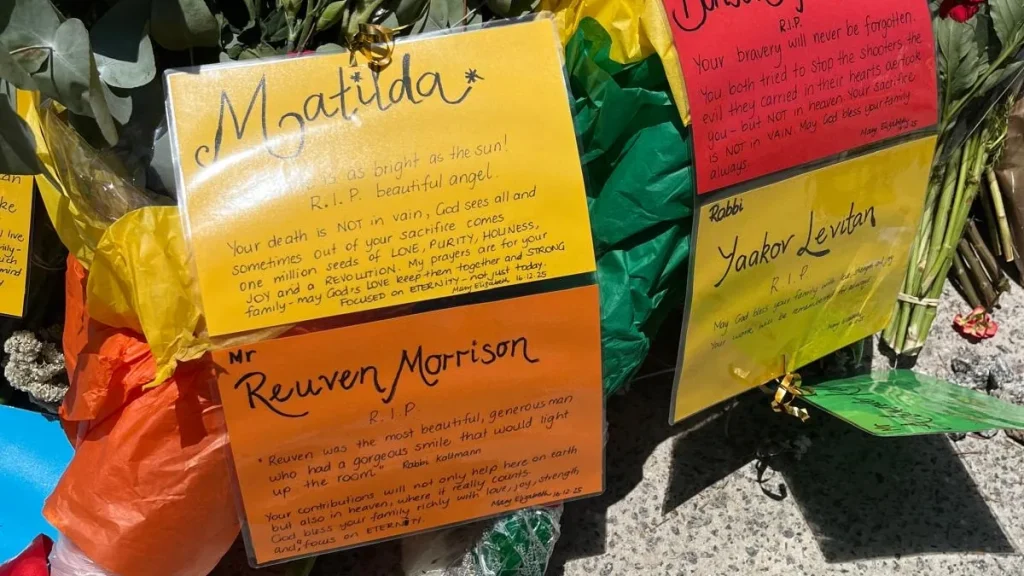 Matilda
is as bright as the sun!
R.I.P. beautiful angel.
Your death is NOT in vain, God sees all and
sometimes out of your sacrifice comes
one million seeds of LOVE, PURITY, HOLINESS,
JOY and a REVOLUTION. My prayers are for your
family - may God's LOVE keep them together and STRONG
FOCUSED on ETERNITY not just today.
Mary Elizabeth 16.12.25
Mr
Reuven Morrison
R.I.P.
"Reuven was the most beautiful, generous man
who had a gorgeous smile that would light
up the room" Rabbi Kollmann
Your contributions will not only help here on earth
but also in heaven, where it really counts.
God bless your family richly with love, joy, strength
and focus on ETERNITY
Mary Elizabeth 16.12.25
R.I.P.
Your bravery will never be forgotten.
You both tried to stop the shooters, the
evil they carried in their hearts
you - but NOT in heaven. Your sacrifice
is NOT in VAIN. May God bless your family
always
Mary Elizabeth 16.12.25
Rabbi
Yaakov Levitan
R.I.P
May God bless your family
Your work will be remembered